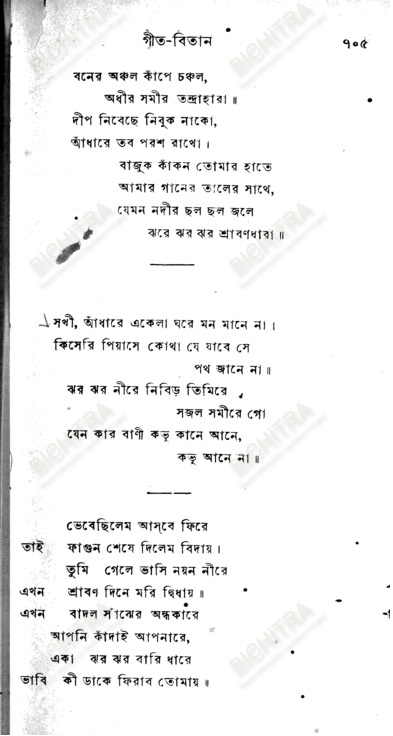 গীত-বিতান ৭০৫
বনের অঞ্চল কাঁপে চঞ্চল,
অধীর সমীর তন্দ্রাহারা॥
দীপ নিবেছে নিবুক নাকো,
আঁধারে তব পরশ রাখো।
বাজুক কাঁকন তোমার হাতে
আমার গানের তালের সাথে,
যেমন নদীর ছল ছল জলে
ঝরে ঝর ঝর শ্রাবণধারা॥
সখী, আঁধারে একেলা ঘরে মন মানে না।
কিসেরি পিয়াসে কোথা যে যাবে সে
পথ জানে না॥
ঝর ঝর নীরে নিবিড় তিমিরে
সজল সমীরে গো
যেন কার বাণী কভু কানে আনে,
কভু আনে না॥
ভেবেছিলেম আস্‌বে ফিরে
তাই ফাগুন শেষে দিলেম বিদায়।
তুমি গেলে ভাসি নয়ন নীরে
এখন শ্রাবণ দিনে মরি দ্বিধায়॥
এখন বাদল সাঁঝের অন্ধকারে
আপনি কাঁদাই আপনারে,
একা ঝর ঝর বারি ধারে
ভাবি কী ডাকে ফিরাব তোমায়॥
BICHITRA
BICHITRA
BICHITRA
BICHITRA
BICHITRA
BICHITRA
BICHITRA
BICHITRA